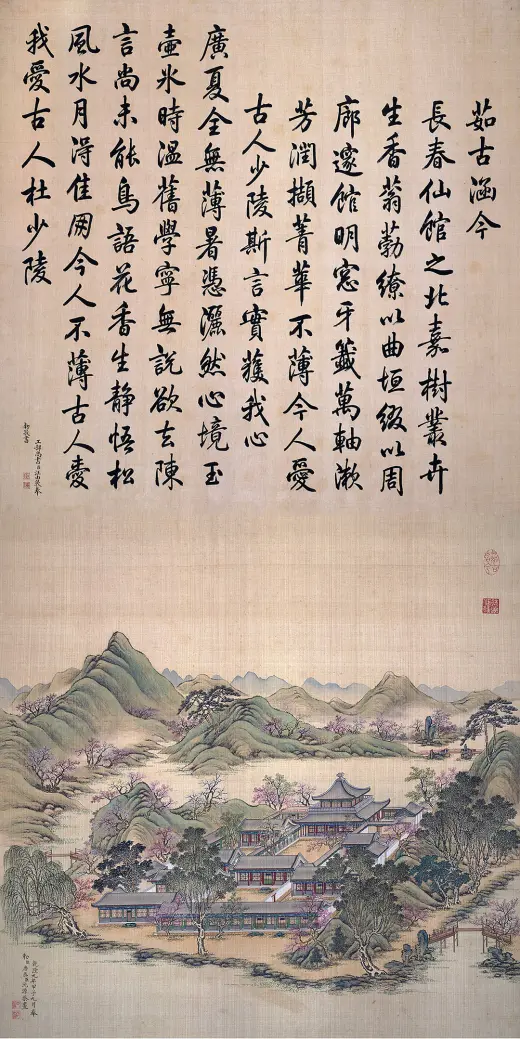 茹古涵今
長春仙館之北嘉樹叢卉
生香蓊勃繚以曲垣綴以周
廊邃館明窓牙籤萬軸漱
芳潤擷菁華不薄今人愛
古人少陵斯言實獲我心
廣夏全無薄暑憑灑然心境玉
壺冰時溫舊學寧無說欲去陳
言尚未能鳥語花香生静悟松
風水月淂佳朋今人不薄古人愛
我愛古人杜少陵
工部尚書臣汪由敦奉
勅敬書
乾隆九年甲子九月奉
勅臣唐岱臣沈源恭畫